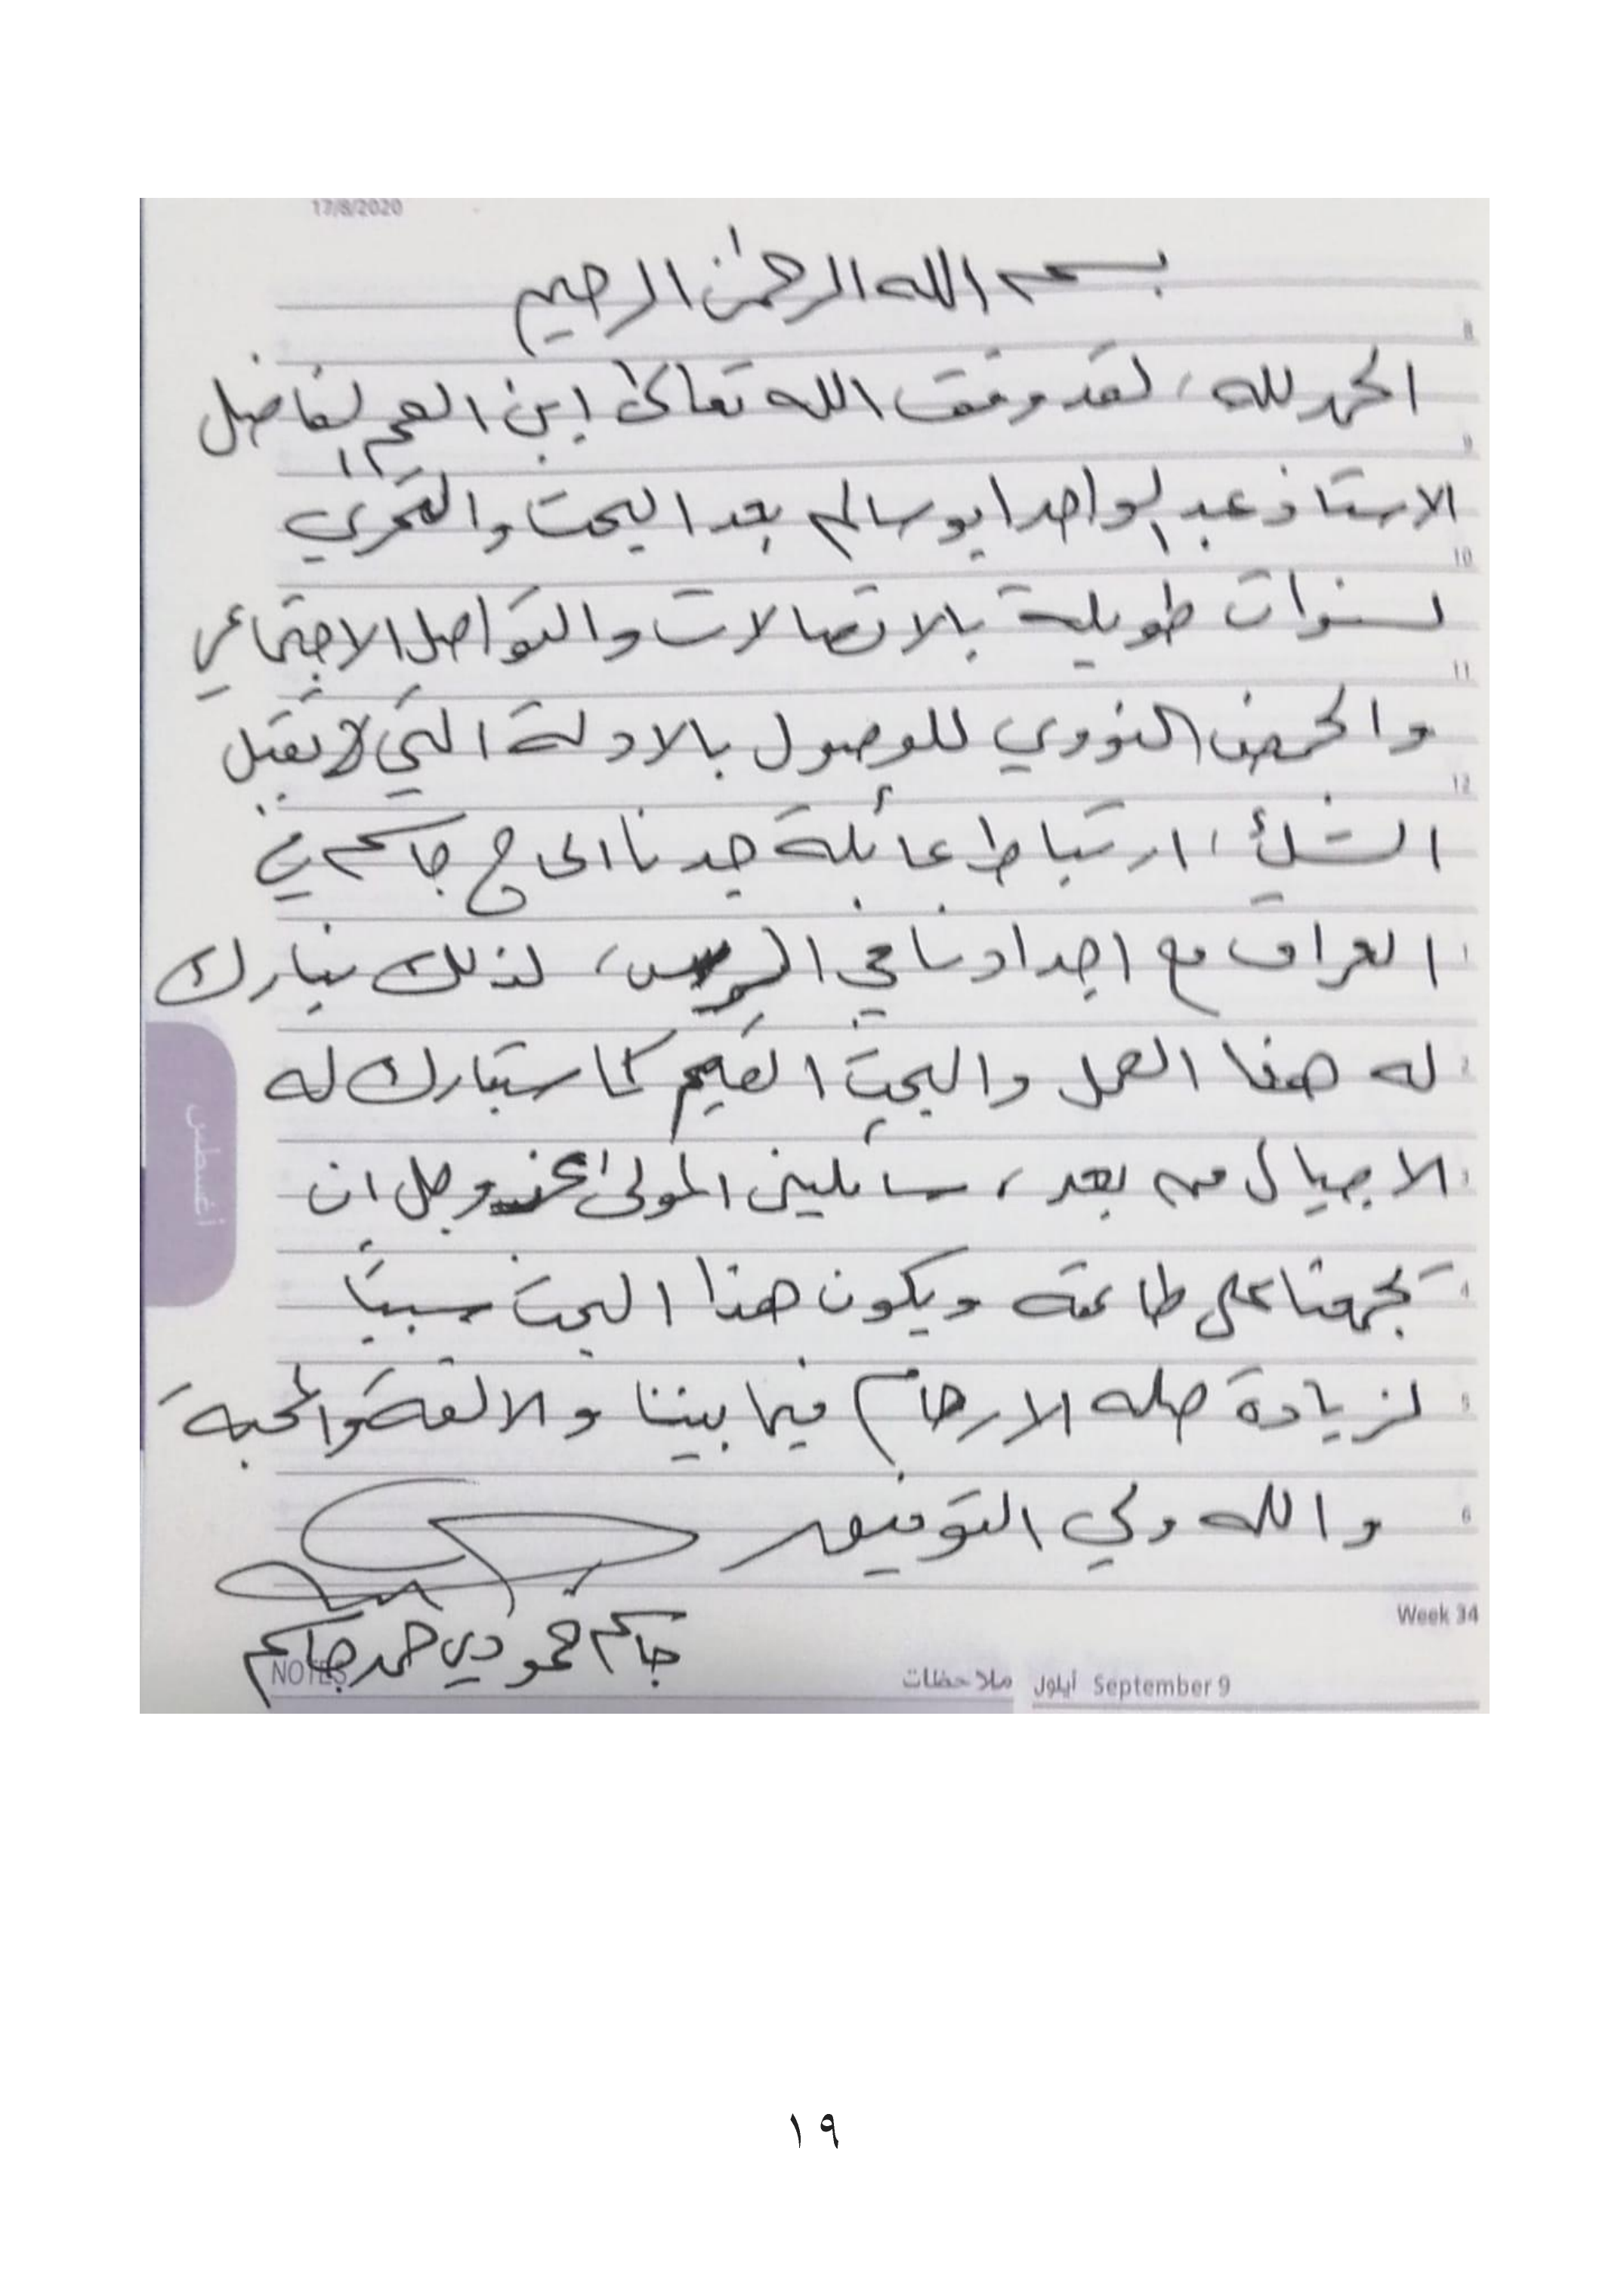 17/8/2020
بسم الله الرحمن الرحيم
8
الحمد لله، لقد وفق الله تعالى ابن العم الفاضل
9
الاستاذ عبد الواحد ابو سالم بعد البحث والتحري
10
لسنوات طويلة بالاتصالات والتواصل الاجتماعي
11
والحمض النووي للوصول بالادلة التي لا تقبل
12
الشك، ارتباط عائلة جدنا الحاج جاسم في
العراق مع اجدادنا في الرس، لذلك نبارك
له هذا العمل والبحث القيم كما ستبارك له
أغسطس
الاجيال من بعد، سائلين المولى عز وجل ان
يجمعنا على طاعته ويكون هذا البحث سبباً
لزيادة صله الارحام فيما بيننا والالفة والمحبة
والله ولي التوفيق
Week 34
جاسم حمودي حمد جاسم
NOTES ملاحظات أيلول September 9
١٩